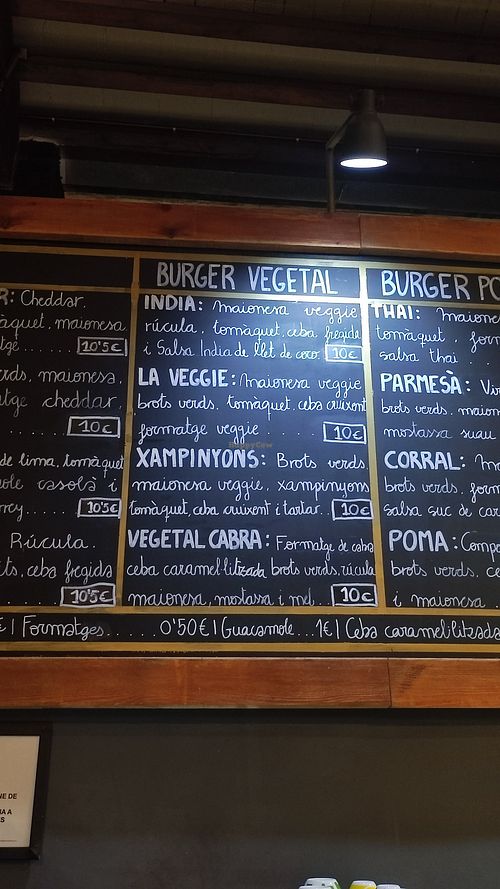 BURGER VEGETAL
BURGER
R: Cheddar,
maionesa
10'5€
maionesa,
cheddar,
10€
de lima, tomàquet
casolà i
10'5€
Rúcula,
ceba fregida
10'5€
INDIA: maionesa veggie
rúcula, tomàquet, ceba fregida
i Salsa India de llet de coco. 10€
LA VEGGIE: maionesa veggie
brots verds, tomàquet, ceba cruixent
formatge veggie 10€
XAMPINYONS: Brots verds,
maionesa veggie, xampinyons,
tomàquet, ceba cruixent i tartar. . 10€
VEGETAL CABRA: Formatge de cabra
ceba caramel·litzada brots verds, rúcula
maionesa, mostassa i mel.. 10€
THAI:
tomàquet,
salsa thai
PARMESÀ:
brots verds,
mostassa suau
CORRAL:
brots verds,
salsa suc de
POMA:
brots verds,
i maionesa
€ | Formatges........0'50€ | Guacamole...1€ | Ceba caramel·litzada